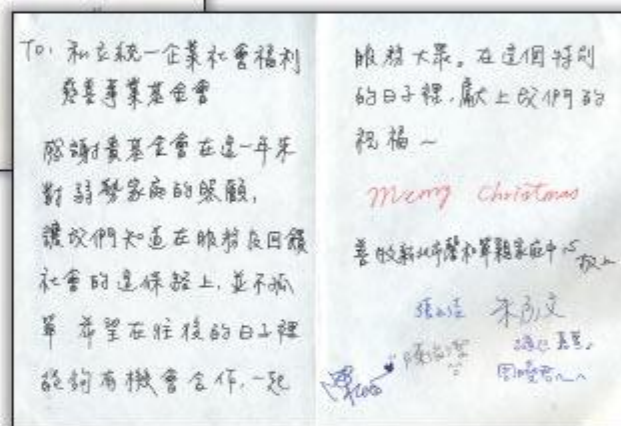 To: 私立統一企業社會福利
慈善事業基金會
感謝貴基金會在這一年來
對弱勢家庭的照顧,
讓我們知道在服務及回饋
社會的這條路上, 並不孤
單 希望在往後的日子裡
能夠有機會合作, 一起
服務大眾。在這個特別
的日子裡, 獻上我們的
祝福~
Merry Christmas
善牧新北市馨和單親家庭中心
敬上